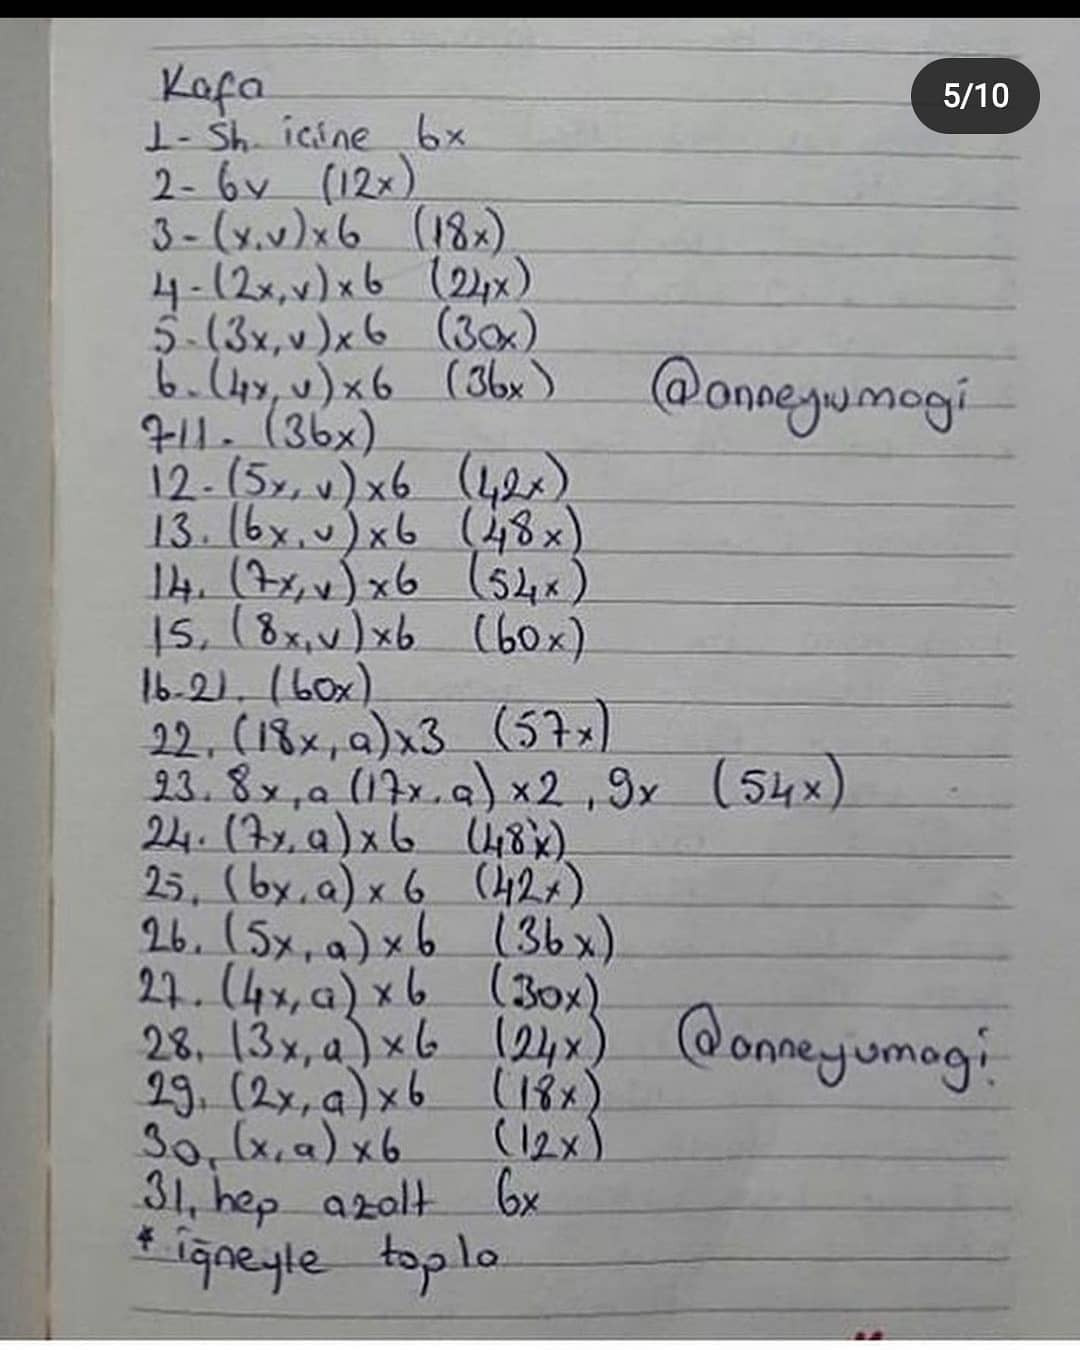 5/10
Kafa
1- Sh. içine 6x
2- 6v (12x)
3- (x,v)x6 (18x)
4- (2x,v)x6 (24x)
5- (3x,v)x6 (30x)
6- (4x,v)x6 (36x)
@anneyumagi
7-11- (36x)
12- (5x, v)x6 (42x)
13. (6x,v)x6 (48x)
14. (7x,v)x6 (54x)
15. (8x,v)x6 (60x)
16-21. (60x)
22. (18x,a)x3 (57x)
23. 8x,a (17x,a)x2, 9x (54x)
24. (7x,a)x6 (48x)
25. (6x,a)x6 (42x)
26. (5x,a)x6 (36x)
27. (4x,a)x6 (30x)
28. (3x,a)x6 (24x)
@anneyumagi
29. (2x,a)x6 (18x)
30. (x,a)x6 (12x)
31. hep azalt 6x
* iğneyle topla